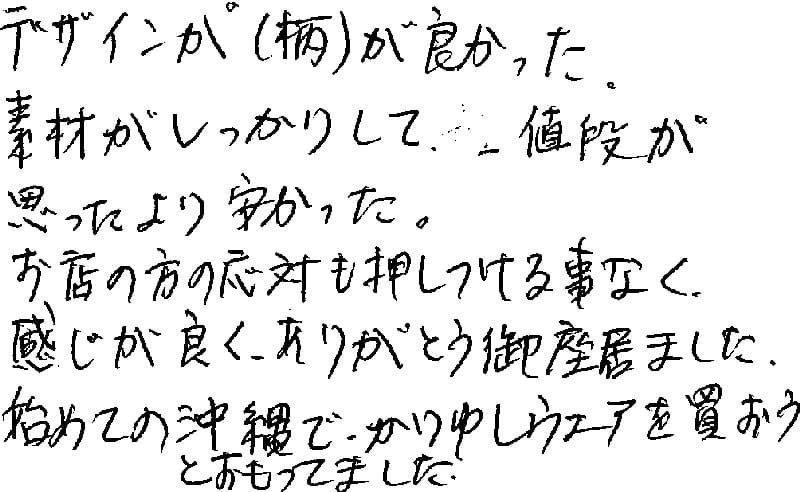 デザインが(柄)が良かった。
素材がしっかりして、値段が
思ったより安かった。
お店の方の応対も押しつける事なく、
感じが良く、ありがとう御座居ました。
始めての沖縄で、かりゆしウエアを買おう
とおもってました。